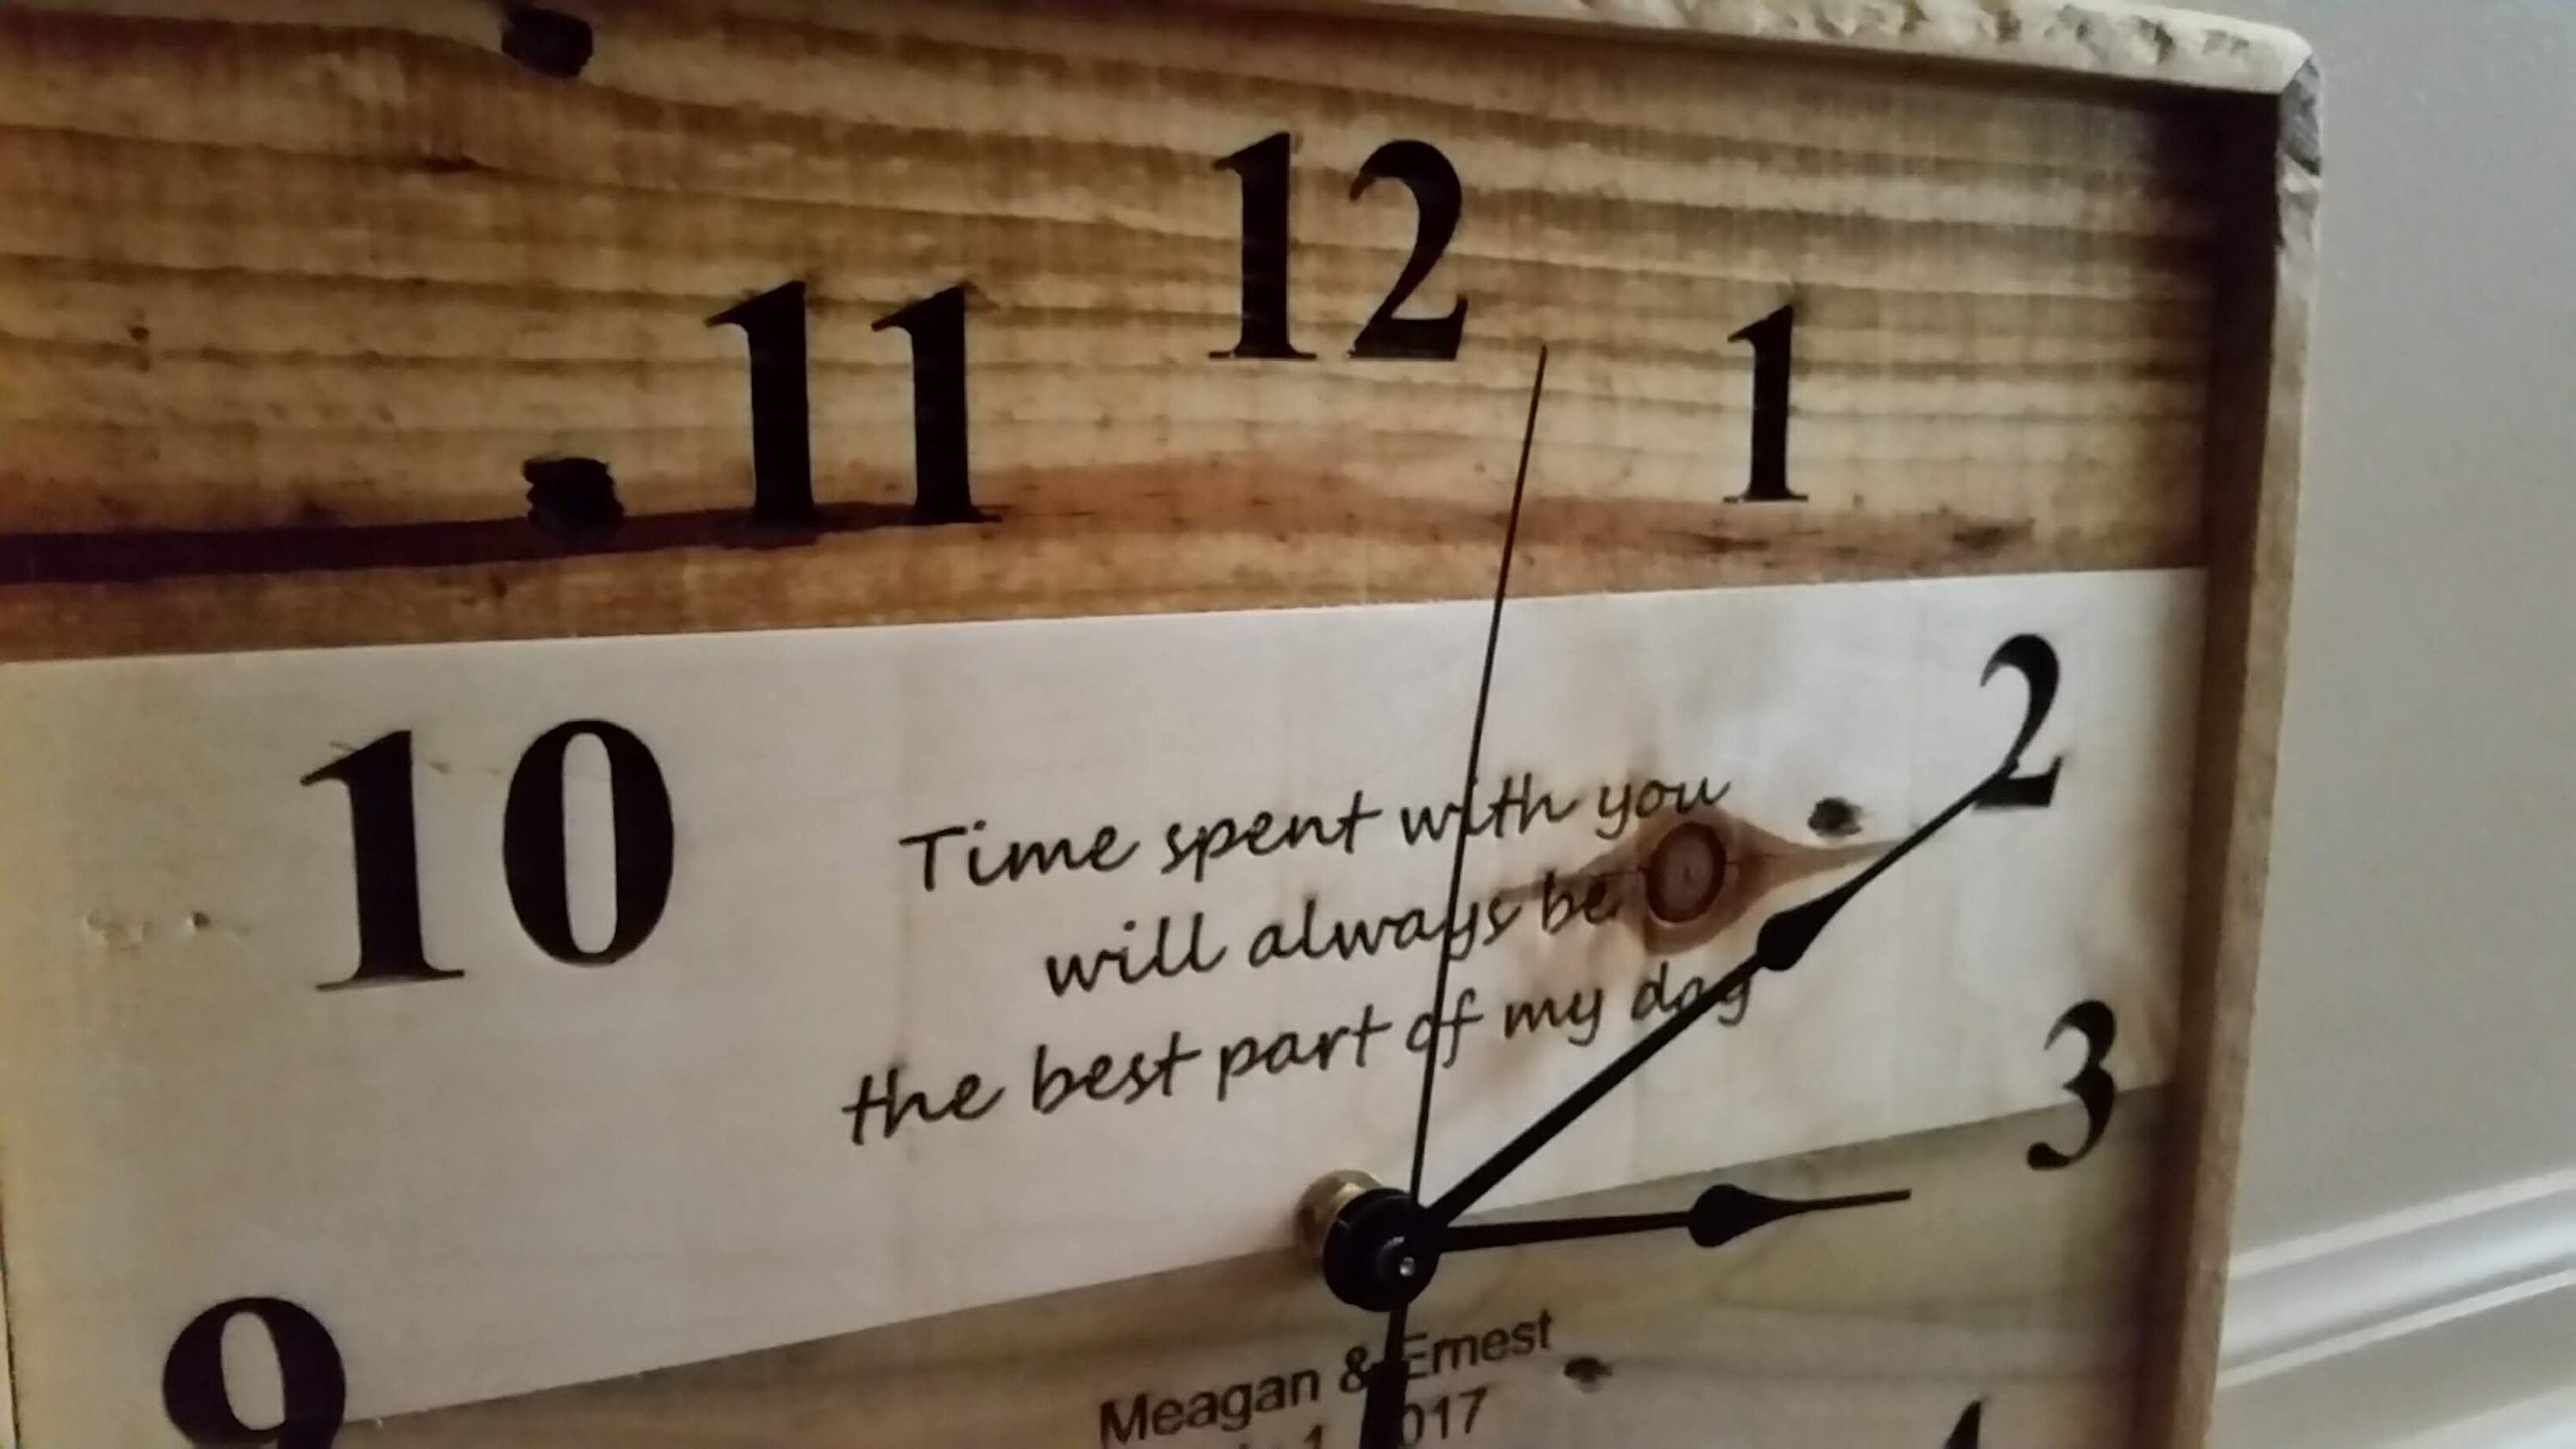 12
11
1
10
2
Time spent with you
will always be
the best part of my day
3
9
Meagan & Ernest